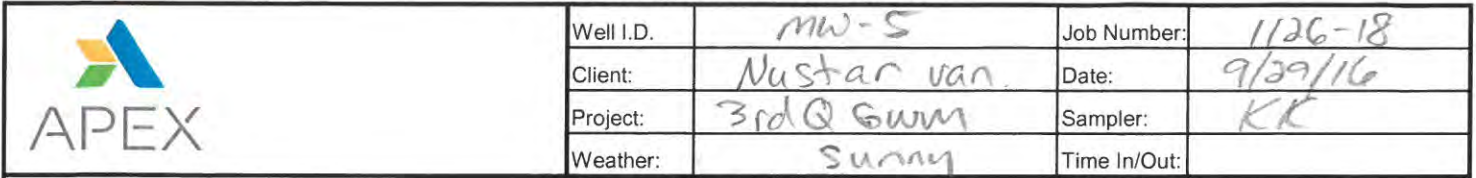 APEX
Well I.D. MW-5 Job Number: 1126-18
Client: Nustar van. Date: 9/29/16
Project: 3rd Q GWM Sampler: KK
Weather: Sunny Time In/Out: